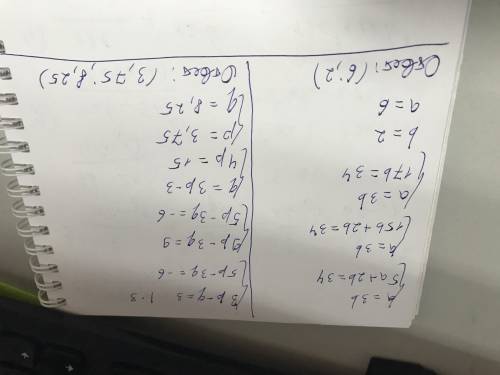 {a=3b
5a+2b=34
{a=3b
15b+2b=34
{a=3b
17b=34
b=2
a=6
Ответ: (6;2)
{3p-q=3 |·3
5p-3q=-6
{9p-3q=9
5p-3q=-6
{q=3p-3
4p=15
{p=3,75
q=8,25
Ответ: (3,75; 8,25)